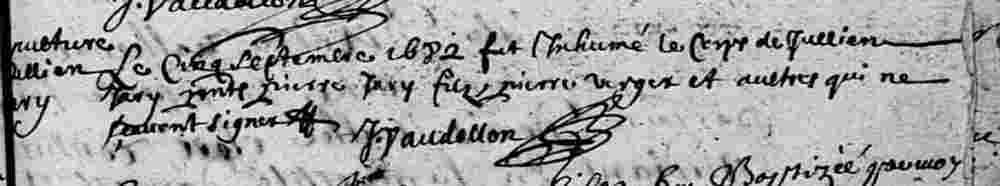 J. Vaudollon
pulture Le Cinq septembre 1682 fut Inhumé le Corps de Jullien
ullien Jary pnts pierre Jary filz, pierre verger et aultres qui ne
ary scavent signer
J. Vaudollon
Baptizée par moy